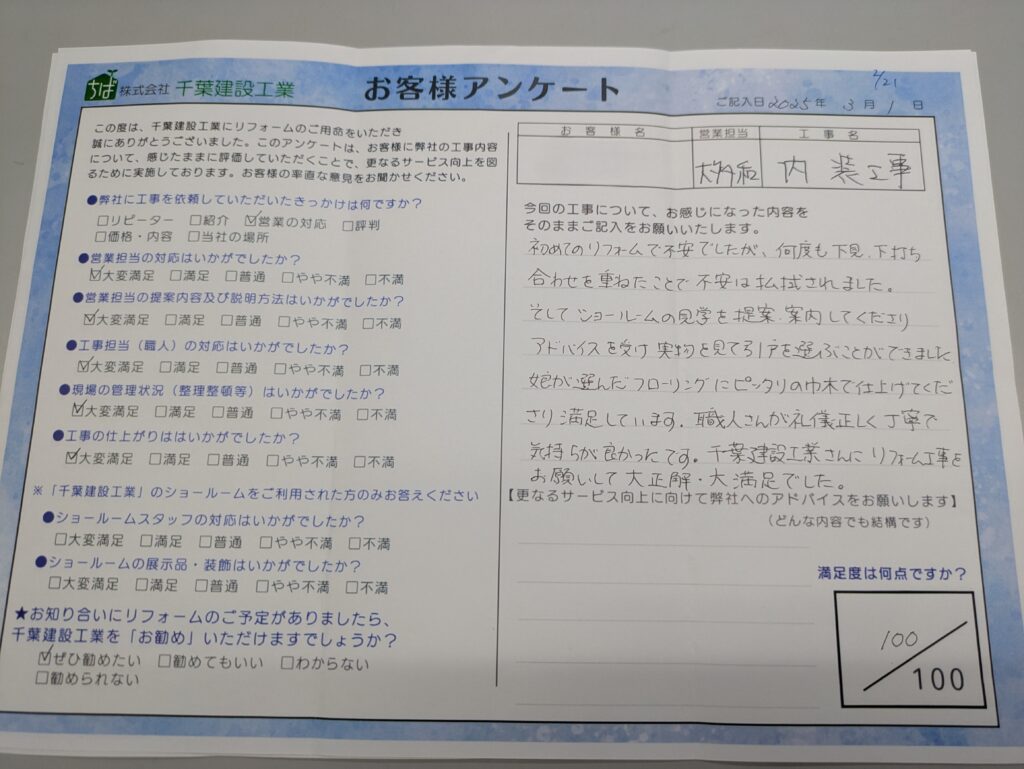 ちば 株式会社 千葉建設工業
お客様アンケート
2/21
ご記入日 2025年 3月 1日
この度は、千葉建設工業にリフォームのご用命をいただき
誠にありがとうございました。このアンケートは、お客様に弊社の工事内容
について、感じたままに評価していただくことで、更なるサービス向上を図
るために実施しております。お客様の率直な意見をお聞かせください。
●弊社に工事を依頼していただいたきっかけは何ですか?
□リピーター □紹介 ☑営業の対応 □評判
□価格・内容 □当社の場所
●営業担当の対応はいかがでしたか?
☑大変満足 □満足 □普通 □やや不満 □不満
●営業担当の提案内容及び説明方法はいかがでしたか?
☑大変満足 □満足 □普通 □やや不満 □不満
●工事担当(職人)の対応はいかがでしたか?
☑大変満足 □満足 □普通 □やや不満 □不満
●現場の管理状況(整理整頓等)はいかがでしたか?
☑大変満足 □満足 □普通 □やや不満 □不満
●工事の仕上がりははいかがでしたか?
☑大変満足 □満足 □普通 □やや不満 □不満
※「千葉建設工業」のショールームをご利用された方のみお答えください
●ショールームスタッフの対応はいかがでしたか?
□大変満足 □満足 □普通 □やや不満 □不満
●ショールームの展示品・装飾はいかがでしたか?
□大変満足 □満足 □普通 □やや不満 □不満
★お知り合いにリフォームのご予定がありましたら、
千葉建設工業を「お勧め」いただけますでしょうか?
☑ぜひ勧めたい □勧めてもいい □わからない
□勧められない
お客様名 営業担当 工事名
内装工事
今回の工事について、お感じになった内容を
そのままご記入をお願いいたします。
初めてのリフォームで不安でしたが、何度も下見、下打ち
合わせを重ねたことで不安は払拭されました。
そしてショールームの見学を提案・案内してくださり
アドバイスを受け 実物を見て引戸を選ぶことができました
娘が選んだフローリングにピッタリの巾木で仕上げてくだ
さり満足しています。職人さんが礼儀正しく丁寧で
気持ちが良かったです。千葉建設工業さんにリフォーム工事を
お願いして大正解・大満足でした。
【更なるサービス向上に向けて弊社へのアドバイスをお願いします】
(どんな内容でも結構です)
満足度は何点ですか?
100
/100